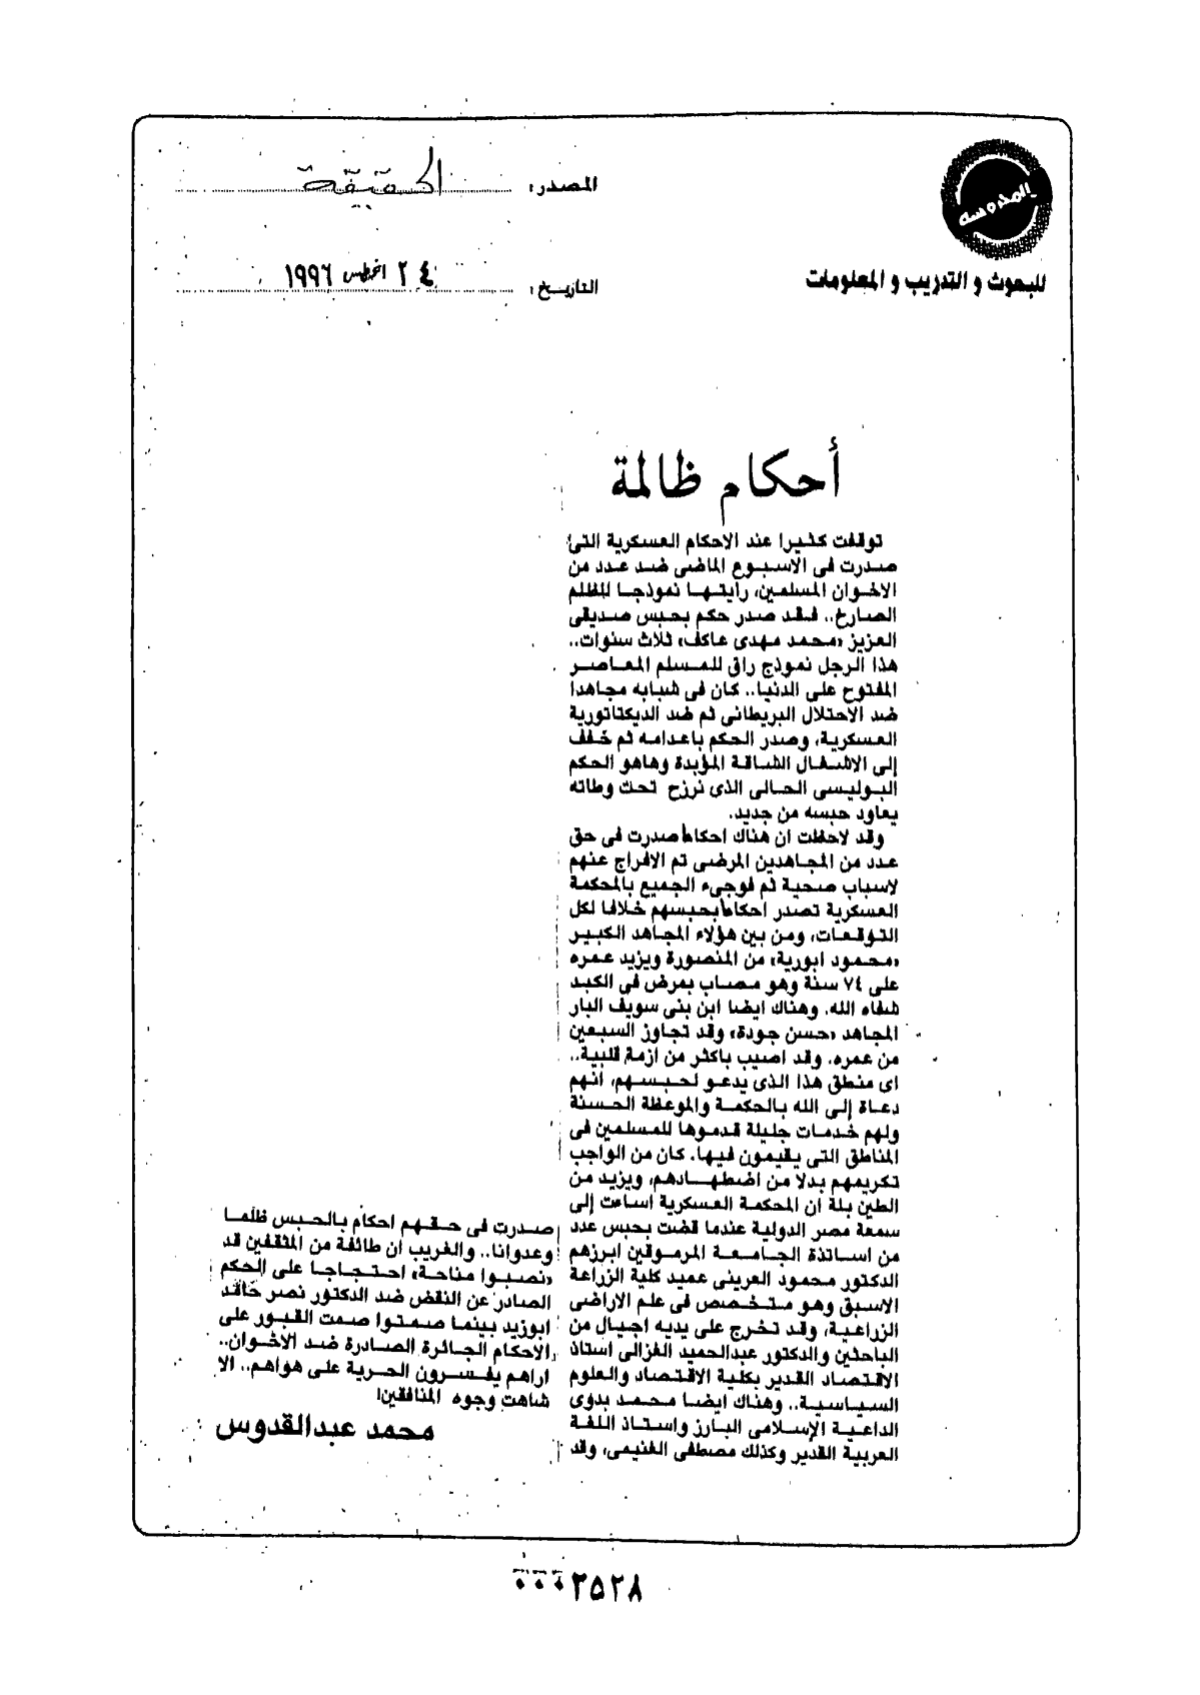 المحروسه
للبحوث و التدريب و المعلومات
المصدر: الحقيقة
التاريخ: ٢٤ اغسطس ١٩٩٦
أحكام ظالمة
توقفت كثيرا عند الاحكام العسكرية التى
صدرت فى الاسبوع الماضى ضد عدد من
الاخوان المسلمين، رايتها نموذجا للظلم
الصارخ.. فقد صدر حكم بحبس صديقى
العزيز «محمد مهدى عاكف» ثلاث سنوات..
هذا الرجل نموذج راق للمسلم المعاصر
المفتوح على الدنيا.. كان فى شبابه مجاهدا
ضد الاحتلال البريطانى ثم ضد الديكتاتورية
العسكرية، وصدر الحكم باعدامه ثم خفف
إلى الاشغال الشاقة المؤبدة وهاهو الحكم
البوليسى الحالى الذى نرزح تحت وطاته
يعاود حبسه من جديد.
وقد لاحظت ان هناك احكاما صدرت فى حق
عدد من المجاهدين المرضى تم الافراج عنهم
لاسباب صحية ثم فوجىء الجميع بالمحكمة
العسكرية تصدر احكاما بحبسهم خلافا لكل
التوقعات، ومن بين هؤلاء المجاهد الكبير
«محمود ابورية» من المنصورة ويزيد عمره
على ٧٤ سنة وهو مصاب بمرض فى الكبد
شفاه الله. وهناك ايضا ابن بنى سويف البار
المجاهد «حسن جودة» وقد تجاوز السبعين
من عمره. وقد اصيب باكثر من ازمة قلبية..
اى منطق هذا الذى يدعو لحبسهم، انهم
دعاة إلى الله بالحكمة والموعظة الحسنة
ولهم خدمات جليلة قدموها للمسلمين فى
المناطق التى يقيمون فيها. كان من الواجب
تكريمهم بدلا من اضطهادهم، ويزيد من
الطين بلة ان المحكمة العسكرية اساءت إلى
سمعة مصر الدولية عندما قضت بحبس عدد
من اساتذة الجامعة المرموقين ابرزهم
الدكتور محمود العرينى عميد كلية الزراعة
الاسبق وهو متخصص فى علم الاراضى
الزراعية، وقد تخرج على يديه اجيال من
الباحثين والدكتور عبدالحميد الغزالى استاذ
الاقتصاد القدير بكلية الاقتصاد والعلوم
السياسية.. وهناك ايضا محمد بدوى
الداعية الإسلامى البارز واستاذ اللغة
العربية القدير وكذلك مصطفى الغنيمى، وقد
صدرت فى حقهم احكام بالحبس ظلما
وعدوانا.. والغريب ان طائفة من المثقفين قد
«نصبوا مناحة» احتجاجا على الحكم
الصادر عن النقض ضد الدكتور نصر حامد
ابوزيد بينما صمتوا صمت القبور على
الاحكام الجائرة الصادرة ضد الاخوان..
اراهم يفسرون الحرية على هواهم.. الا
شاهت وجوه المنافقين!
محمد عبدالقدوس
٠٠٠٢٥٢٨